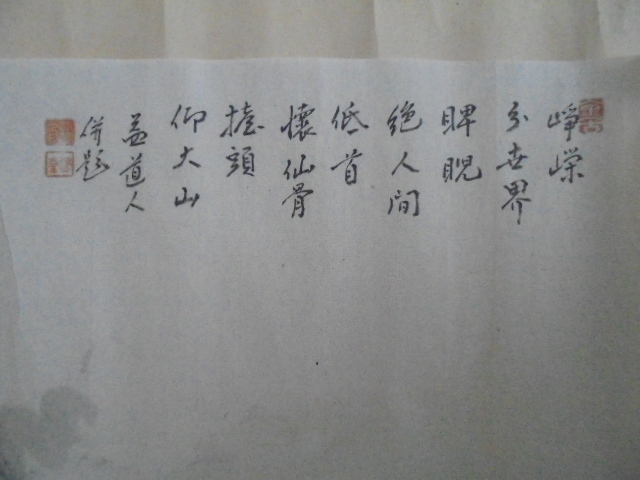 崢嶸
分世界
睥睨
絶人間
低首
懷仙骨
擡頭
仰大山
益道人
併題